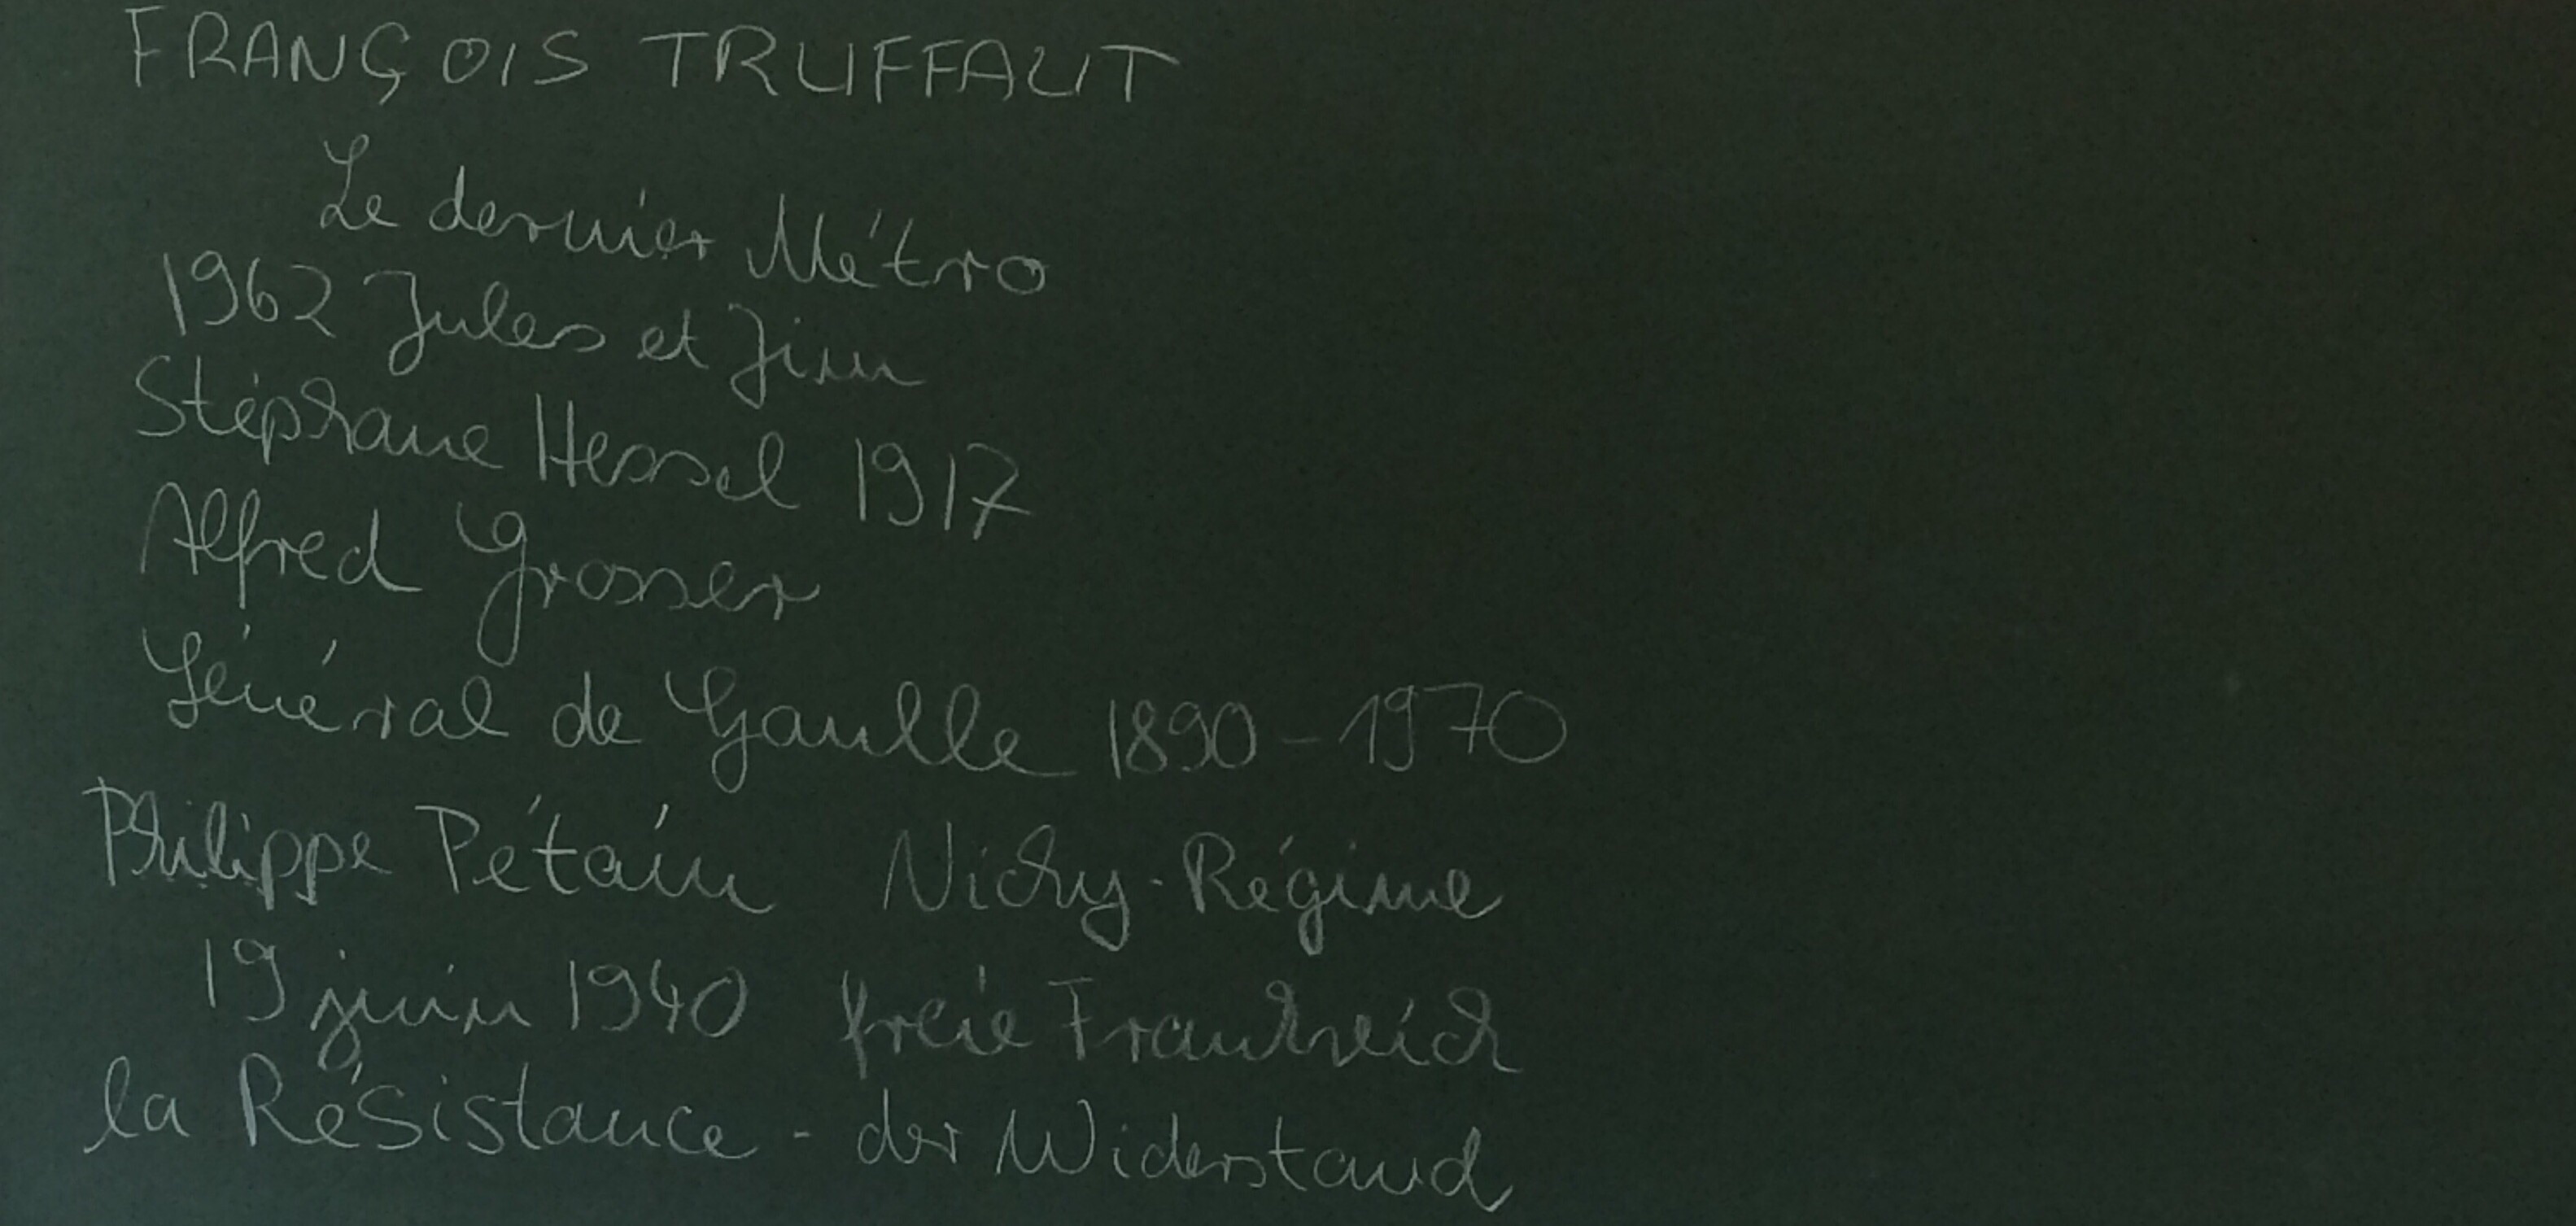 FRANÇOIS TRUFFAUT
Le dernier Métro
1962 Jules et Jim
Stéphane Hessel 1917
Alfred Grosser
Général de Gaulle 1890-1970
Philippe Pétain Vichy-Régime
19 juin 1940 freie Frankreich
la Résistance - der Widerstand